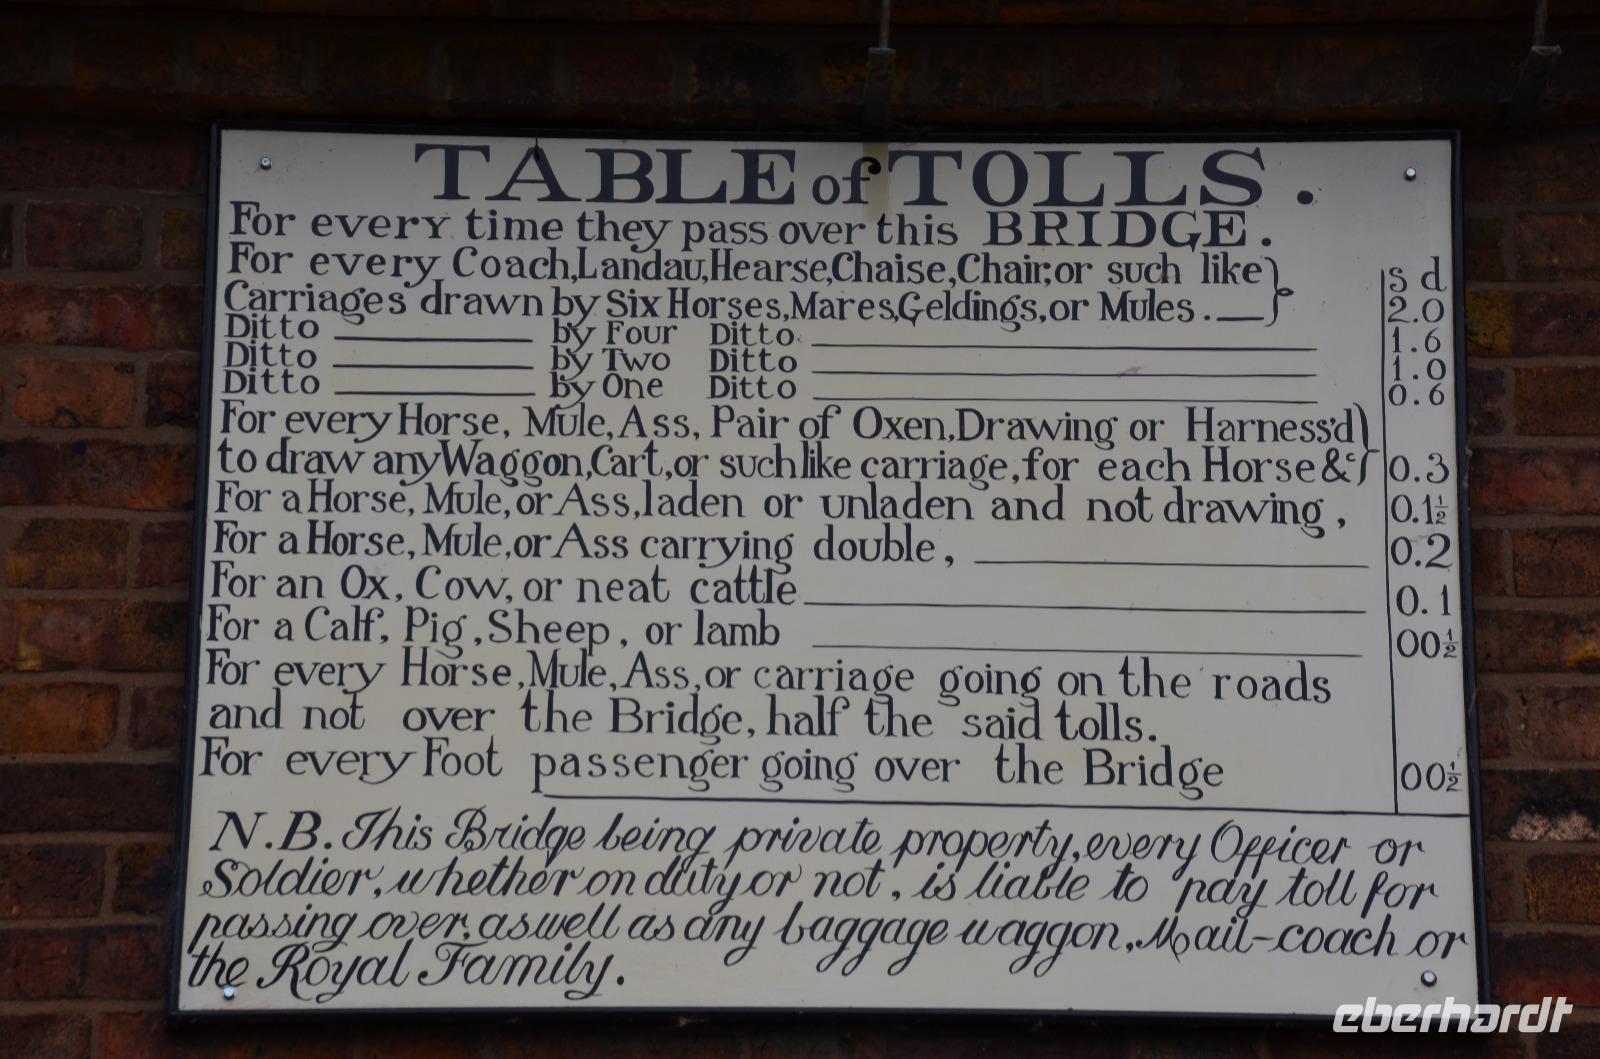 TABLE of TOLLS.
For every time they pass over this BRIDGE.
For every Coach, Landau, Hearse, Chaise, Chair, or such like } s d
Carriages drawn by Six Horses, Mares, Geldings, or Mules. — } 2.0
Ditto ——— by Four Ditto ——— 1.6
Ditto ——— by Two Ditto ——— 1.0
Ditto ——— by One Ditto ——— 0.6
For every Horse, Mule, Ass, Pair of Oxen, Drawing or Harness'd }
to draw any Waggon, Cart, or such like carriage, for each Horse &c } 0.3
For a Horse, Mule, or Ass, laden or unladen and not drawing, 0.1½
For a Horse, Mule, or Ass carrying double, ——— 0.2
For an Ox, Cow, or neat cattle ——— 0.1
For a Calf, Pig, Sheep, or lamb ——— 00½
For every Horse, Mule, Ass, or carriage going on the roads
and not over the Bridge, half the said tolls.
For every Foot passenger going over the Bridge 00½
N.B. This Bridge being private property, every Officer or
Soldier, whether on duty or not, is liable to pay toll for
passing over, as well as any baggage waggon, Mail-coach or
the Royal Family.
eberhardt